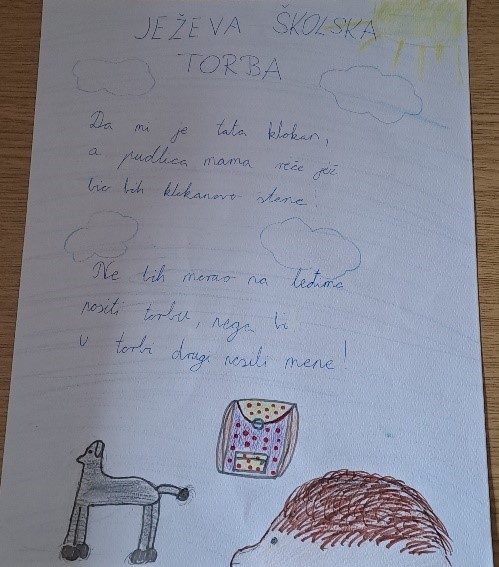 JEŽEVA ŠKOLSKA
TORBA
Da mi je tata klokan,
a pudlica mama reče jež
bio bih klokanovo štene!
Ne bih morao na leđima
nositi torbu, nego bi
u torbi drugi nosili mene!